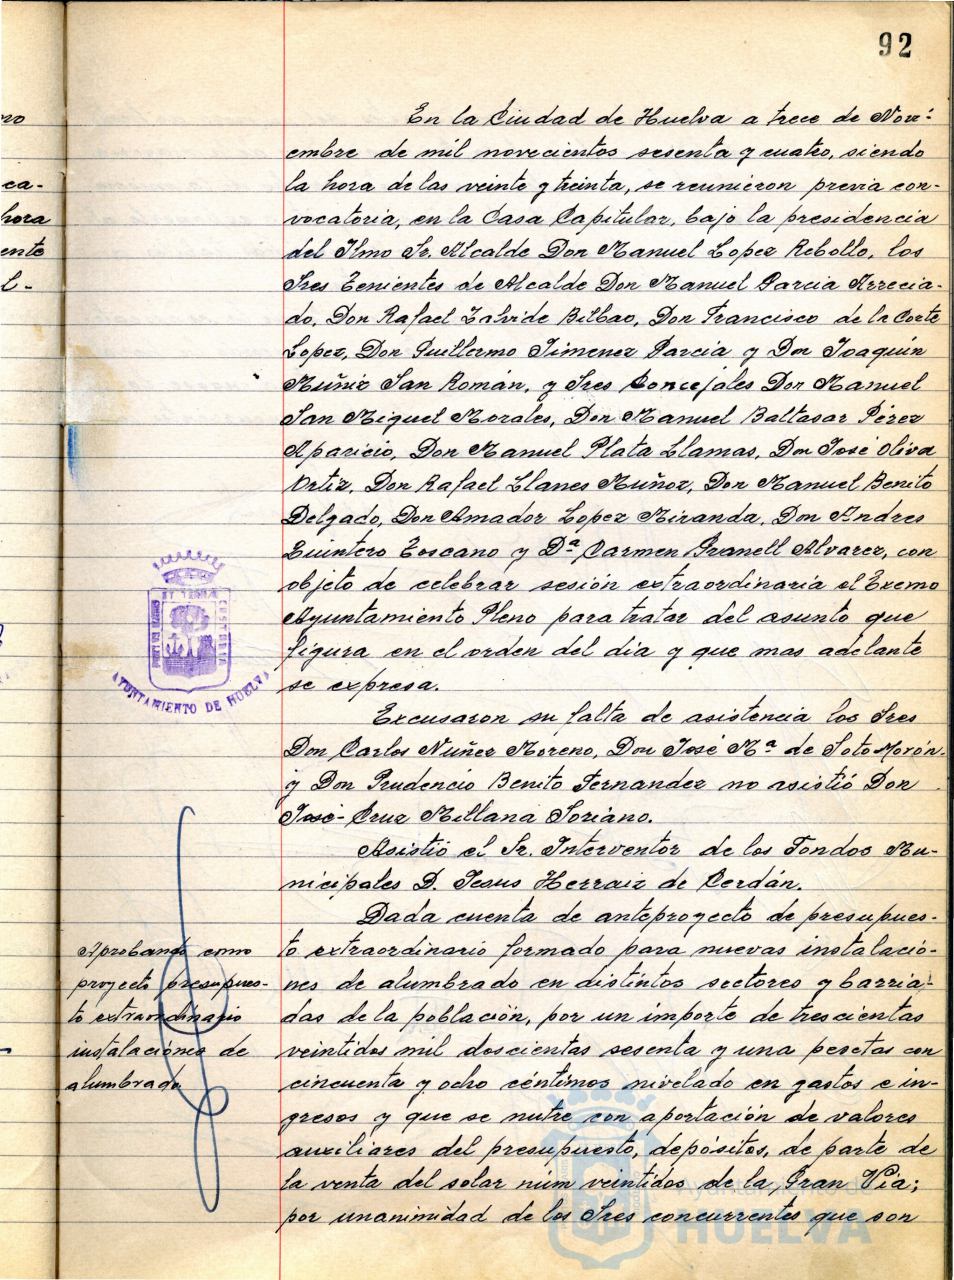 92
En la Ciudad de Huelva a trece de Novi-
embre de mil novecientos sesenta y cuatro, siendo
la hora de las veinte y treinta, se reunieron previa con-
vocatoria, en la Casa Capitular, bajo la presidencia
del Ilmo Sr. Alcalde Don Manuel Lopez Rebollo, los
Sres Tenientes de Alcalde Don Manuel Garcia Arrecia-
do, Don Rafael Zalvide Bilbao, Don Francisco de la Corte
Lopez, Don Guillermo Jimenez Garcia y Don Joaquin
Muñiz San Román, y Sres Concejales Don Manuel
San Miguel Morales, Don Manuel Baltasar Pérez
Aparicio, Don Manuel Plata Llamas, Don José Oliva
Ortiz, Don Rafael Llanes Muñoz, Don Manuel Benito
Delgado, Don Amador Lopez Miranda, Don Andres
Quintero Toscano y Dª Carmen Granell Alvarez, con
objeto de celebrar sesión extraordinaria el Excmo
Ayuntamiento Pleno para tratar del asunto que
figura en el orden del día y que mas adelante
se expresa.
Excusaron su falta de asistencia los Sres
Don Carlos Nuñez Moreno, Don José Mª de Soto Morón
y Don Prudencio Benito Fernandez no asistió Don
José Cruz Millana Soriano.
Asistió el Sr. Interventor de los Fondos Mu-
nicipales D. Jesus Herraiz de Cerdán.
Dada cuenta de anteproyecto de presupues-
to extraordinario formado para nuevas instalacio-
nes de alumbrado en distintos sectores y barria-
das de la población, por un importe de trescientas
veintidos mil doscientas sesenta y una pesetas con
cincuenta y ocho céntimos nivelado en gastos e in-
gresos y que se nutre con aportación de valores
auxiliares del presupuesto, depósitos, de parte de
la venta del solar núm veintidos de la Gran Vía;
por unanimidad de los Sres concurrentes que son
Aprobando como
proyecto presupues-
to extraordinario
instalaciones de
alumbrado
AYUNTAMIENTO DE HUELVA
ca-
hora
ente
Ayuntamiento de
HUELVA